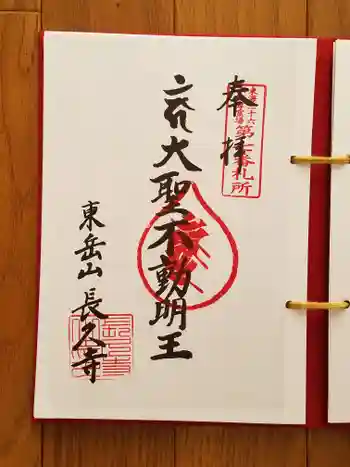 奉拝
東海三十六
不動尊霊場
第七番札所
大聖不動明王
東岳山 長久寺